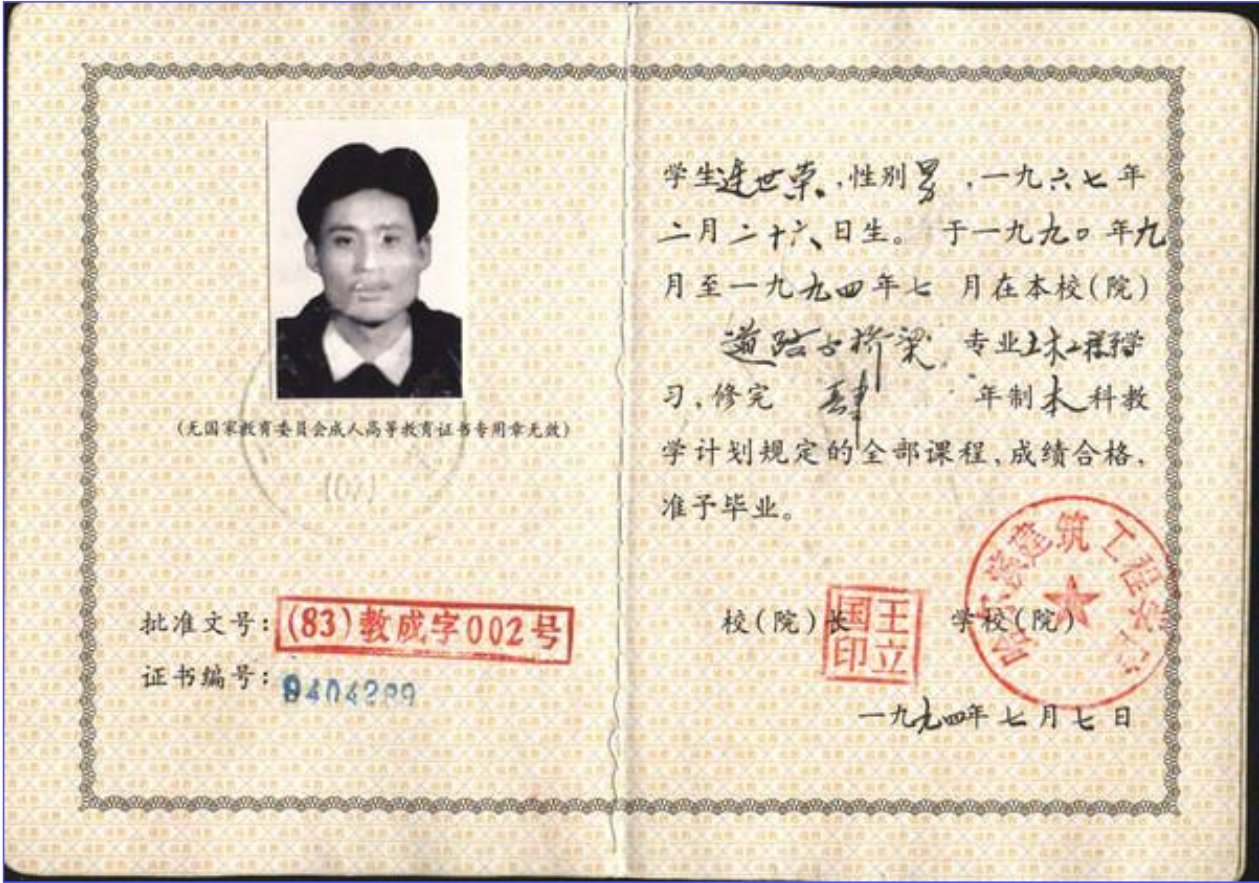 (无国家教育委员会成人高等教育证书专用章无效)
(07)
批准文号：(83)教成字002号
证书编号：9404289
学生连世荣，性别男，一九六七年
二月二十六日生。于一九九〇年九
月至一九九四年七月在本校(院)
道路与桥梁 专业土木工程系学
习，修完 肆 年制本科教
学计划规定的全部课程，成绩合格，
准予毕业。
校(院)长 学校(院)
国王
印立
哈尔滨建筑工程学院
一九九四年七月七日